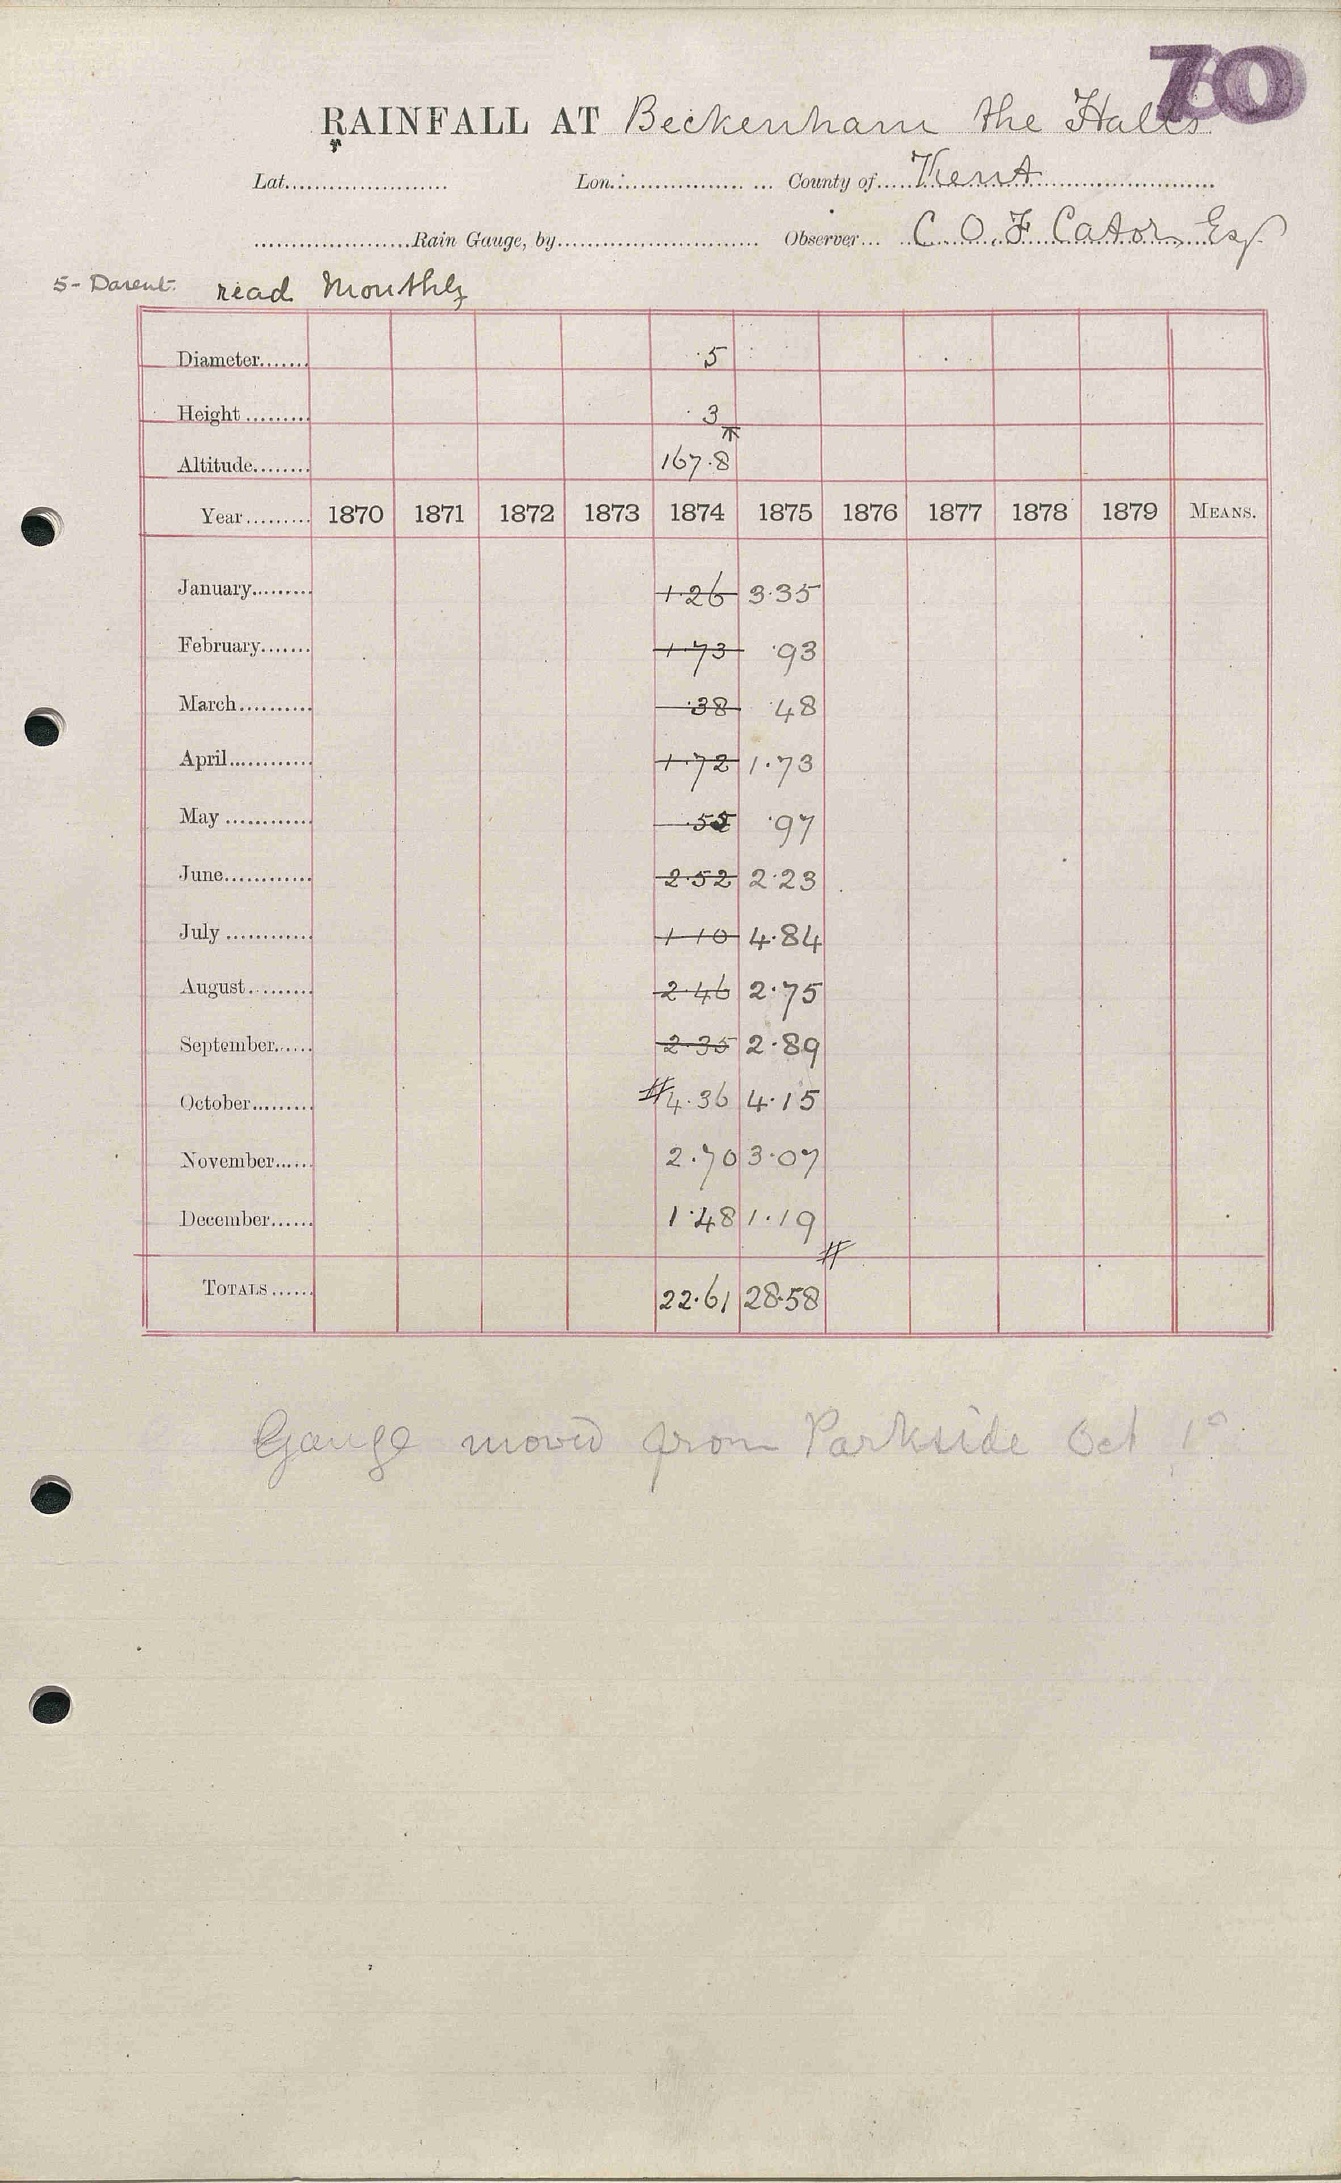 70
RAINFALL AT Beckenham the Halls
Lat. Lon. County of Kent
Rain Gauge, by Observer C. O. F. Cator, Esq
5- Darent. read Monthly
Diameter 5
Height 3
Altitude 167.8
Year 1870 1871 1872 1873 1874 1875 1876 1877 1878 1879 MEANS.
January 1.26 3.35
February 1.73 .93
March .38 .48
April 1.72 1.73
May .55 .97
June 2.52 2.23
July 1.10 4.84
August 2.46 2.75
September 2.35 2.89
October #4.36 4.15
November 2.70 3.07
December 1.48 1.19
#
TOTALS 22.61 28.58
Gauge moved from Parkside Oct 1º